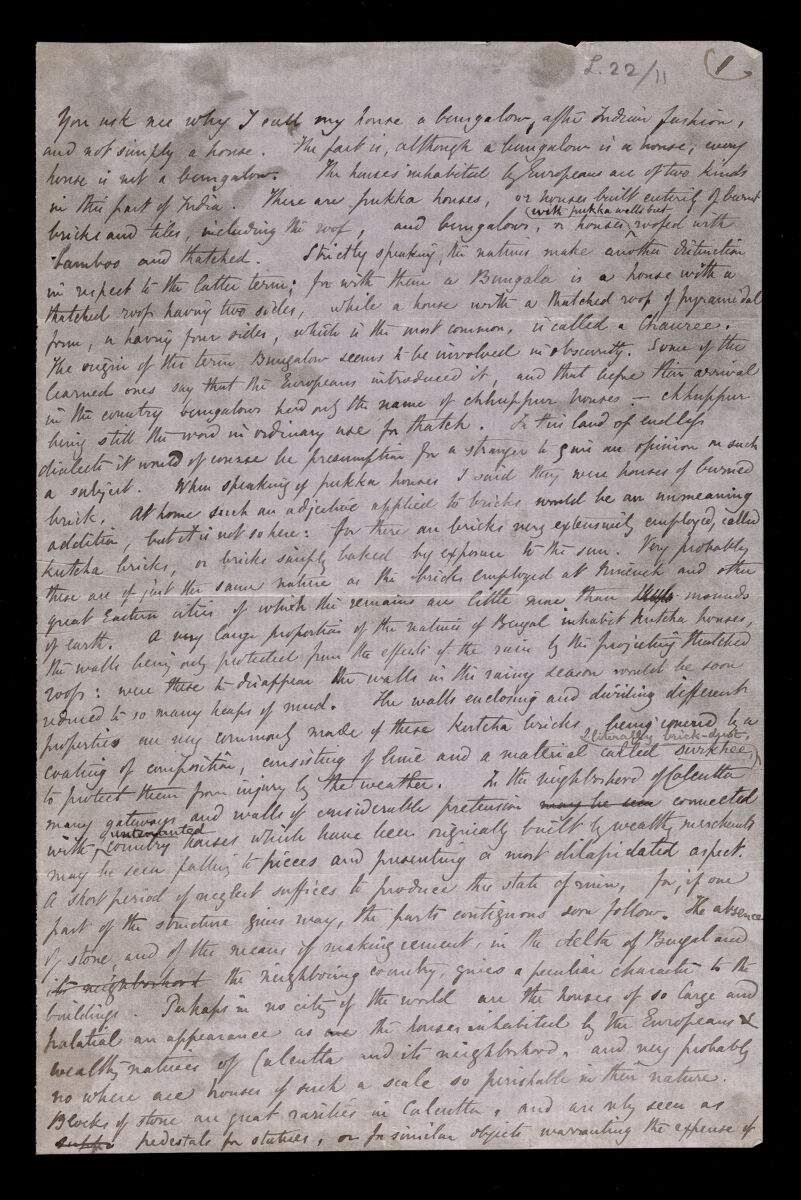 L.22/11
1
You ask me why I call my house a bungalow, after Indian fashion,
and not simply a house. The fact is, although a bungalow is a house, every
house is not a bungalow. The houses inhabited by Europeans are of two kinds
in this part of India. There are pukka houses, or houses built entirely of burnt
(with pukka walls but
bricks and tiles, including the roof, and bungalows, or houses roofed with
bamboo and thatched. Strictly speaking, the natives make another distinction
in respect to the latter term; for with them a Bungala is a house with a
thatched roof having two sides, while a house with a thatched roof of pyramidal
form, or having four sides, which is the most common, is called a Chauree.
The origin of the term Bungalow seems to be involved in obscurity. Some of the
learned ones say that the Europeans introduced it, and that before their arrival
in the country bungalows had only the name of chhuppur houses — chhuppur
being still the word in ordinary use for thatch. In this land of endless
dialects it would of course be presumption for a stranger to give an opinion on such
a subject. When speaking of pukka houses I said they were houses of burned
brick. At home such an adjective applied to bricks would be an unmeaning
addition, but it is not so here: for there are bricks very extensively employed, called
kutcha bricks, or bricks simply baked by exposure to the sun. Very probably
these are of just the same nature as the bricks employed at Nineveh and other
great Eastern cities of which the remains are little more than mounds
of earth. A very large proportion of the natives of Bengal inhabit kutcha houses,
the walls being only protected from the effects of the rain by the projecting thatched
roofs: were these to disappear the walls in the rainy season would be soon
reduced to so many heaps of mud. The walls enclosing and dividing different
properties are very commonly made of these kutcha bricks, being covered by a
(literally brick-dust,)
coating of composition, consisting of lime and a material called soorkhee,
to protect them from injury by the weather. In the neighborhood of Calcutta
many gateways and walls of considerable pretension may be seen connected
untenanted
with country houses which have been originally built by wealthy merchants
may be seen falling to pieces and presenting a most dilapidated aspect.
A short period of neglect suffices to produce this state of ruin, for, if one
part of the structure gives way, the parts contiguous soon follow. The absence
of stone, and of the means of making cement, in the delta of Bengal and
its neighborhood the neighbouring country, gives a peculiar character to the
buildings. Perhaps in no city of the world are the houses of so large and
palatial an appearance as are the houses inhabited by the Europeans &
wealthy natives of Calcutta and its neighborhood, and very probably
no where are houses of such a scale so perishable in their nature.
Blocks of stone are great rarities in Calcutta, and are only seen as
pedestals for statues, or for similar objects warranting the expense of